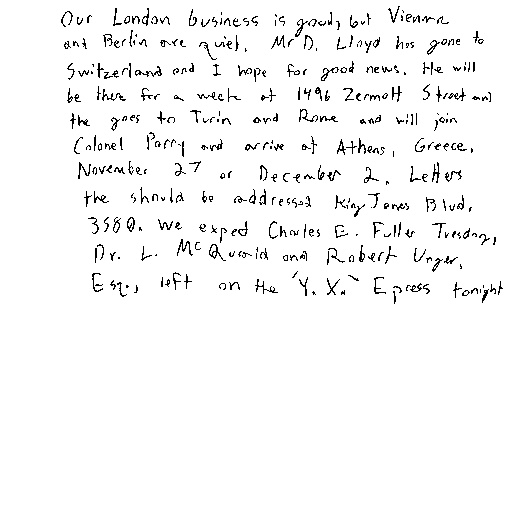 Our London business is good, but Vienna
and Berlin are quiet. Mr D. Lloyd has gone to
Switzerland and I hope for good news. He will
be there for a week at 1496 Zermott Street and
the goes to Turin and Rome and will join
Colonel Parry and arrive at Athens, Greece,
November 27 or December 2. Letters
the should be addressed King James Blvd.
3580. We expect Charles E. Fuller Tuesday,
Dr. L. McQuaid and Robert Unger,
Esq., left on the "Y. X." Epress tonight